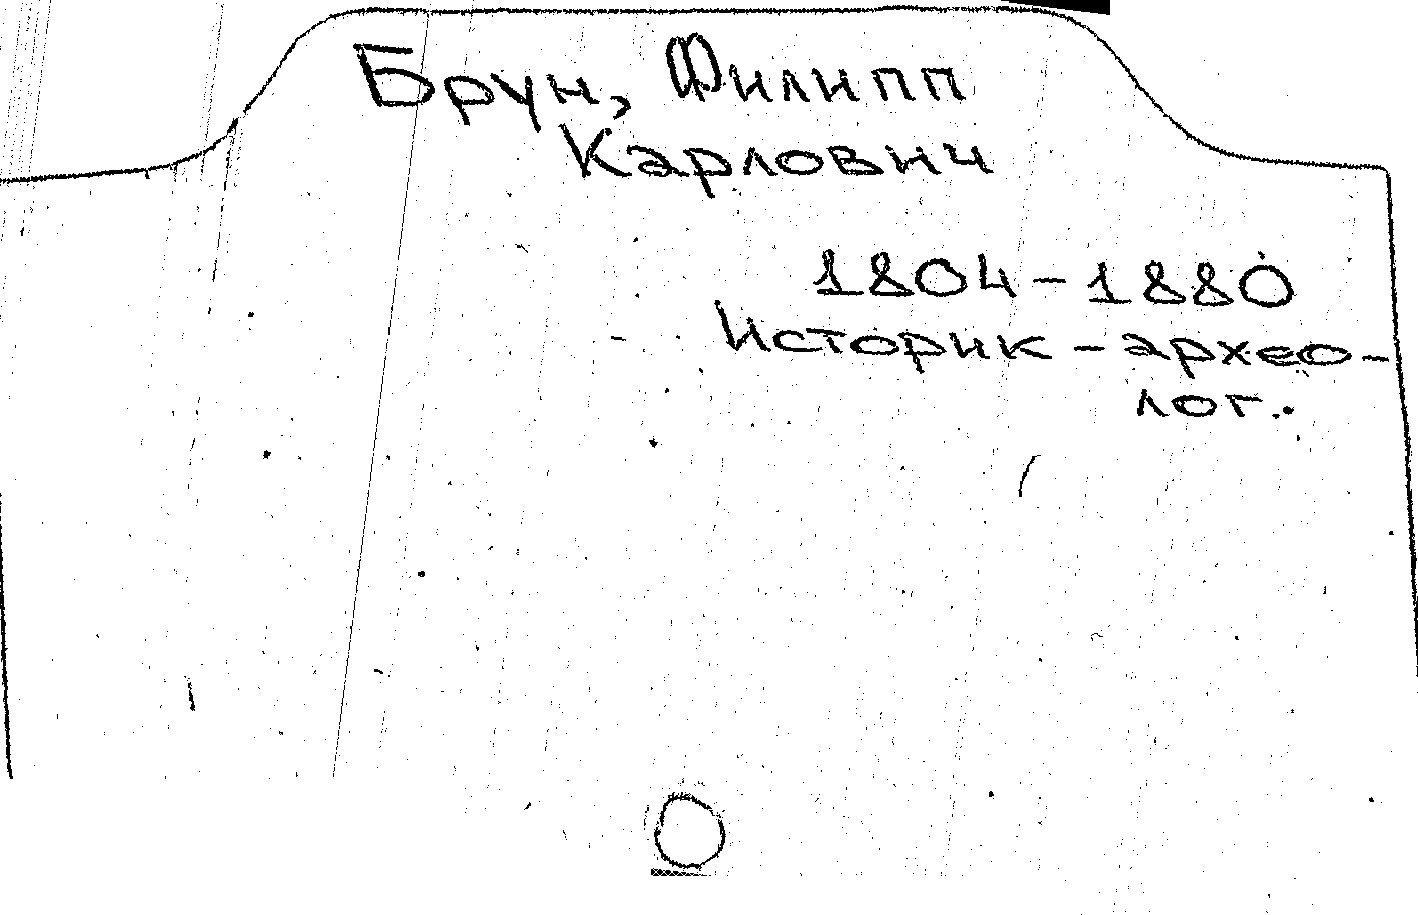 Брун, Филипп
Карлович
1804-1880
Историк-архео-
лог.